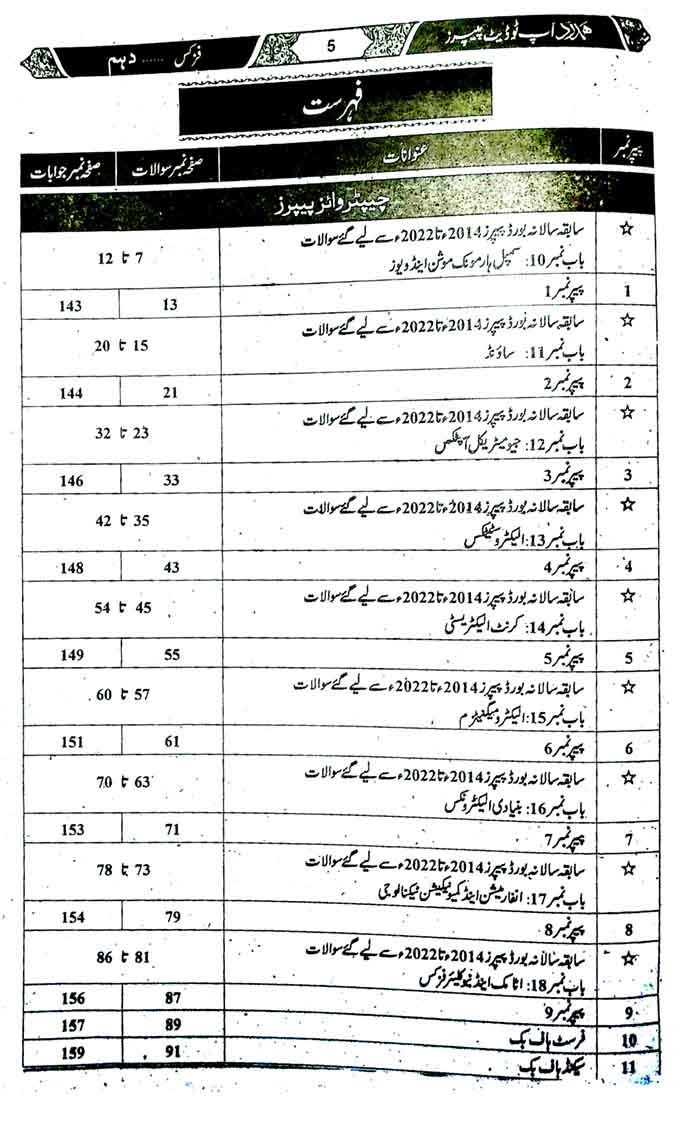 ہمدرد اَپ ٹو ڈیٹ پیپرز
5
فزکس ...... دہم
فہرست
پیپر نمبر عنوانات صفحہ نمبر سوالات صفحہ نمبر جوابات
چیپٹر وائز پیپرز
☆ سابقہ سالانہ بورڈ پیپرز 2014ء تا 2022ء سے لیے گئے سوالات
باب نمبر 10: سمپل ہارمونک موشن اینڈ ویوز 7 تا 12
1 پیپر نمبر 1 13 143
☆ سابقہ سالانہ بورڈ پیپرز 2014ء تا 2022ء سے لیے گئے سوالات
باب نمبر 11: ساؤنڈ 15 تا 20
2 پیپر نمبر 2 21 144
☆ سابقہ سالانہ بورڈ پیپرز 2014ء تا 2022ء سے لیے گئے سوالات
باب نمبر 12: جیومیٹریکل آپٹکس 23 تا 32
3 پیپر نمبر 3 33 146
☆ سابقہ سالانہ بورڈ پیپرز 2014ء تا 2022ء سے لیے گئے سوالات
باب نمبر 13: الیکٹروسٹیٹکس 35 تا 42
4 پیپر نمبر 4 43 148
☆ سابقہ سالانہ بورڈ پیپرز 2014ء تا 2022ء سے لیے گئے سوالات
باب نمبر 14: کرنٹ الیکٹریسٹی 45 تا 54
5 پیپر نمبر 5 55 149
☆ سابقہ سالانہ بورڈ پیپرز 2014ء تا 2022ء سے لیے گئے سوالات
باب نمبر 15: الیکٹرومیگنیٹزم 57 تا 60
6 پیپر نمبر 6 61 151
☆ سابقہ سالانہ بورڈ پیپرز 2014ء تا 2022ء سے لیے گئے سوالات
باب نمبر 16: بنیادی الیکٹرونکس 63 تا 70
7 پیپر نمبر 7 71 153
☆ سابقہ سالانہ بورڈ پیپرز 2014ء تا 2022ء سے لیے گئے سوالات
باب نمبر 17: انفارمیشن اینڈ کمیونیکیشن ٹیکنالوجی 73 تا 78
8 پیپر نمبر 8 79 154
☆ سابقہ سالانہ بورڈ پیپرز 2014ء تا 2022ء سے لیے گئے سوالات
باب نمبر 18: اٹامک اینڈ نیوکلیئر فزکس 81 تا 86
9 پیپر نمبر 9 87 156
10 فرسٹ ہاف بک 89 157
11 سیکنڈ ہاف بک 91 159